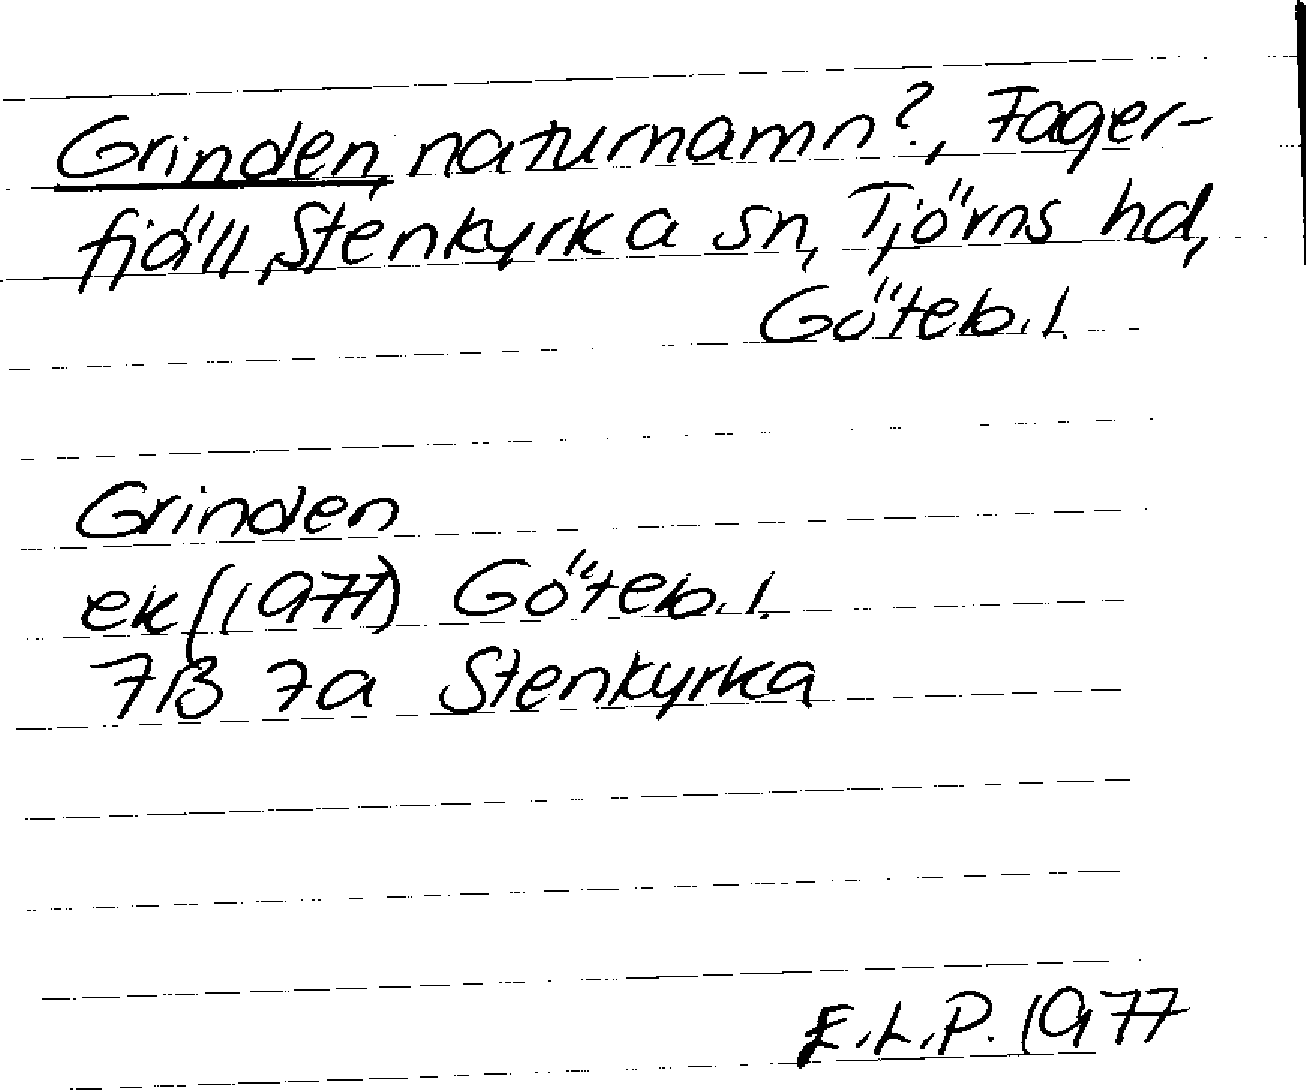 Grinden, naturnamn?, Fager-
fjäll, Stenkyrka sn, Tjörns hd,
Göteb. l.
Grinden
ek (1977) Göteb. l.
7B 7a Stenkyrka
E.L.P. 1977